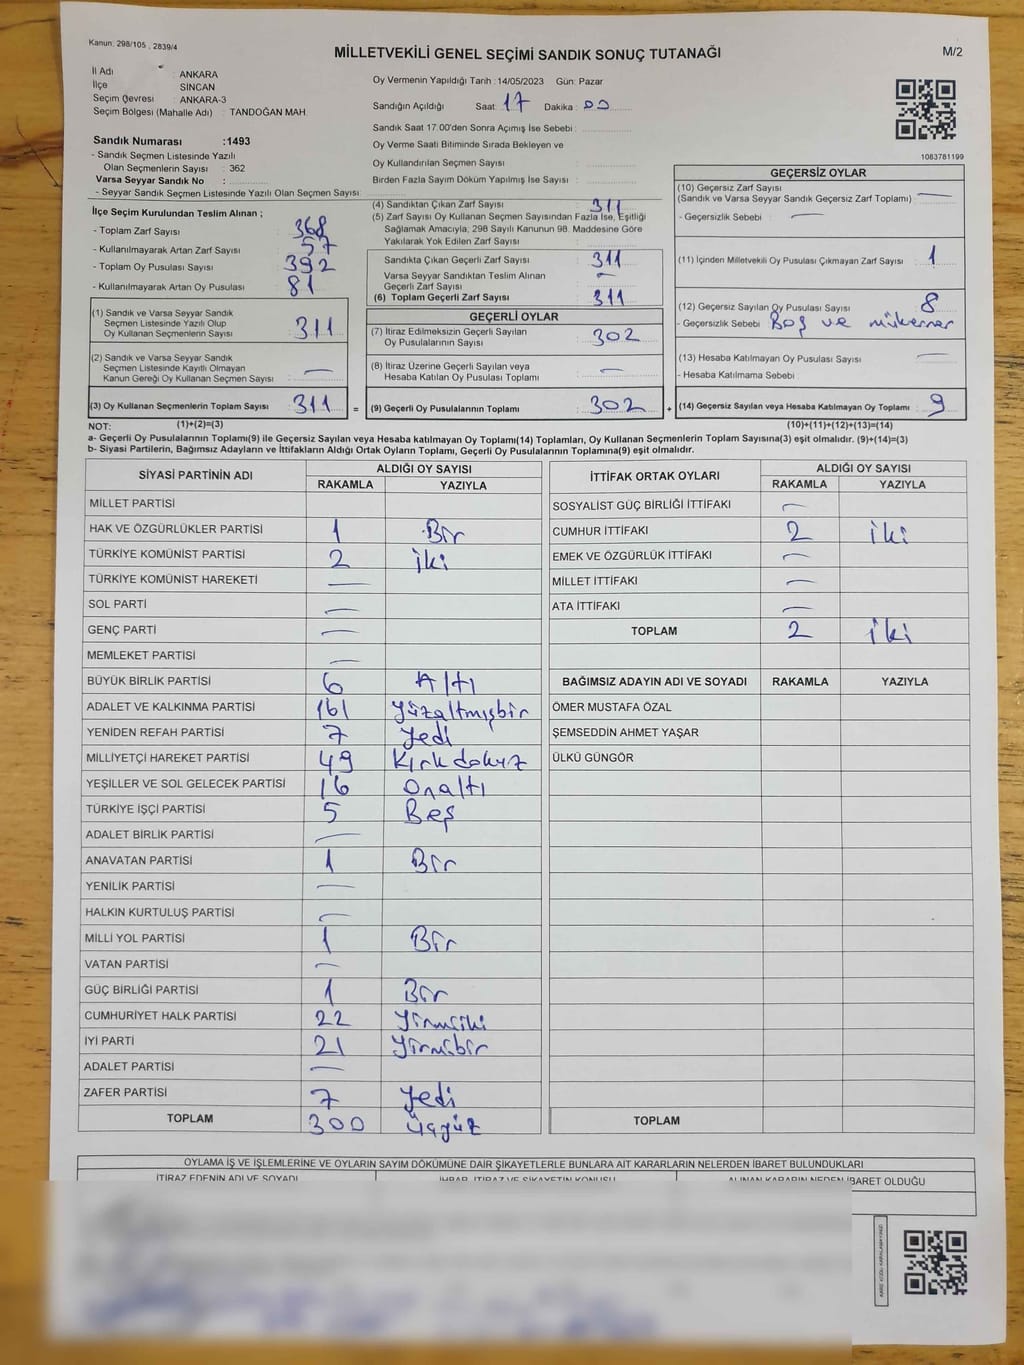 Kanun: 298/105 , 2839/4
MİLLETVEKİLİ GENEL SEÇİMİ SANDIK SONUÇ TUTANAĞI
M/2
İl Adı : ANKARA
İlçe SİNCAN
Seçim Çevresi : ANKARA-3
Seçim Bölgesi (Mahalle Adı) : TANDOĞAN MAH.
Oy Vermenin Yapıldığı Tarih : 14/05/2023 Gün: Pazar
Sandığın Açıldığı Saat: 17 Dakika : 00
Sandık Saat 17.00'den Sonra Açımış İse Sebebi :
Oy Verme Saati Bitiminde Sırada Bekleyen ve
Oy Kullandırılan Seçmen Sayısı :
Birden Fazla Sayım Döküm Yapılmış İse Sayısı :
1083781199
Sandık Numarası :1493
- Sandık Seçmen Listesinde Yazılı
Olan Seçmenlerin Sayısı : 362
Varsa Seyyar Sandık No :
- Seyyar Sandık Seçmen Listesinde Yazılı Olan Seçmen Sayısı:
İlçe Seçim Kurulundan Teslim Alınan ;
- Toplam Zarf Sayısı 368
- Kullanılmayarak Artan Zarf Sayısı 57
- Toplam Oy Pusulası Sayısı 392
- Kullanılmayarak Artan Oy Pusulası 81
(1) Sandık ve Varsa Seyyar Sandık
Seçmen Listesinde Yazılı Olup
Oy Kullanan Seçmenlerin Sayısı : 311
(2) Sandık ve Varsa Seyyar Sandık
Seçmen Listesinde Kayıtlı Olmayan
Kanun Gereği Oy Kullanan Seçmen Sayısı : —
(3) Oy Kullanan Seçmenlerin Toplam Sayısı : 311 =
(4) Sandıktan Çıkan Zarf Sayısı : 311
(5) Zarf Sayısı Oy Kullanan Seçmen Sayısından Fazla İse, Eşitliği
Sağlamak Amacıyla, 298 Sayılı Kanunun 98. Maddesine Göre
Yakılarak Yok Edilen Zarf Sayısı :
Sandıkta Çıkan Geçerli Zarf Sayısı : 311
Varsa Seyyar Sandıktan Teslim Alınan
Geçerli Zarf Sayısı : —
(6) Toplam Geçerli Zarf Sayısı : 311
GEÇERLİ OYLAR
(7) İtiraz Edilmeksizin Geçerli Sayılan
Oy Pusulalarının Sayısı : 302
(8) İtiraz Üzerine Geçerli Sayılan veya
Hesaba Katılan Oy Pusulası Toplamı : —
(9) Geçerli Oy Pusulalarının Toplamı : 302 +
GEÇERSİZ OYLAR
(10) Geçersiz Zarf Sayısı : —
(Sandık ve Varsa Seyyar Sandık Geçersiz Zarf Toplamı)
- Geçersizlik Sebebi : —
(11) İçinden Milletvekili Oy Pusulası Çıkmayan Zarf Sayısı : 1
(12) Geçersiz Sayılan Oy Pusulası Sayısı : 8
- Geçersizlik Sebebi : Boş ve mükerrer
(13) Hesaba Katılmayan Oy Pusulası Sayısı : —
- Hesaba Katılmama Sebebi :
(14) Geçersiz Sayılan veya Hesaba Katılmayan Oy Toplamı : 9
NOT: (1)+(2)=(3) (10)+(11)+(12)+(13)=(14)
a- Geçerli Oy Pusulalarının Toplamı(9) ile Geçersiz Sayılan veya Hesaba katılmayan Oy Toplamı(14) Toplamları, Oy Kullanan Seçmenlerin Toplam Sayısına(3) eşit olmalıdır. (9)+(14)=(3)
b- Siyasi Partilerin, Bağımsız Adayların ve İttifakların Aldığı Ortak Oyların Toplamı, Geçerli Oy Pusulalarının Toplamına(9) eşit olmalıdır.
SİYASİ PARTİNİN ADI ALDIĞI OY SAYISI
RAKAMLA YAZIYLA
MİLLET PARTİSİ
HAK VE ÖZGÜRLÜKLER PARTİSİ 1 Bir
TÜRKİYE KOMÜNİST PARTİSİ 2 iki
TÜRKİYE KOMÜNİST HAREKETİ —
SOL PARTİ —
GENÇ PARTİ —
MEMLEKET PARTİSİ —
BÜYÜK BİRLİK PARTİSİ 6 Altı
ADALET VE KALKINMA PARTİSİ 161 yüzaltmışbir
YENİDEN REFAH PARTİSİ 7 yedi
MİLLİYETÇİ HAREKET PARTİSİ 49 Kırkdokuz
YEŞİLLER VE SOL GELECEK PARTİSİ 16 Onaltı
TÜRKİYE İŞÇİ PARTİSİ 5 Beş
ADALET BİRLİK PARTİSİ —
ANAVATAN PARTİSİ 1 Bir
YENİLİK PARTİSİ —
HALKIN KURTULUŞ PARTİSİ —
MİLLİ YOL PARTİSİ 1 Bir
VATAN PARTİSİ —
GÜÇ BİRLİĞİ PARTİSİ 1 Bir
CUMHURİYET HALK PARTİSİ 22 Yirmiiki
İYİ PARTİ 21 Yirmibir
ADALET PARTİSİ —
ZAFER PARTİSİ 7 yedi
TOPLAM 300 üçyüz
İTTİFAK ORTAK OYLARI ALDIĞI OY SAYISI
RAKAMLA YAZIYLA
SOSYALİST GÜÇ BİRLİĞİ İTTİFAKI —
CUMHUR İTTİFAKI 2 iki
EMEK VE ÖZGÜRLÜK İTTİFAKI —
MİLLET İTTİFAKI —
ATA İTTİFAKI —
TOPLAM 2 iki
BAĞIMSIZ ADAYIN ADI VE SOYADI RAKAMLA YAZIYLA
ÖMER MUSTAFA ÖZAL
ŞEMSEDDİN AHMET YAŞAR
ÜLKÜ GÜNGÖR
TOPLAM
OYLAMA İŞ VE İŞLEMLERİNE VE OYLARIN SAYIM DÖKÜMÜNE DAİR ŞİKAYETLERLE BUNLARA AİT KARARLARIN NELERDEN İBARET BULUNDUKLARI
İTİRAZ EDENİN ADI VE SOYADI İHBAR, İTİRAZ VE ŞİKAYETİN KONUSU ALINAN KARARIN NEDEN İBARET OLDUĞU